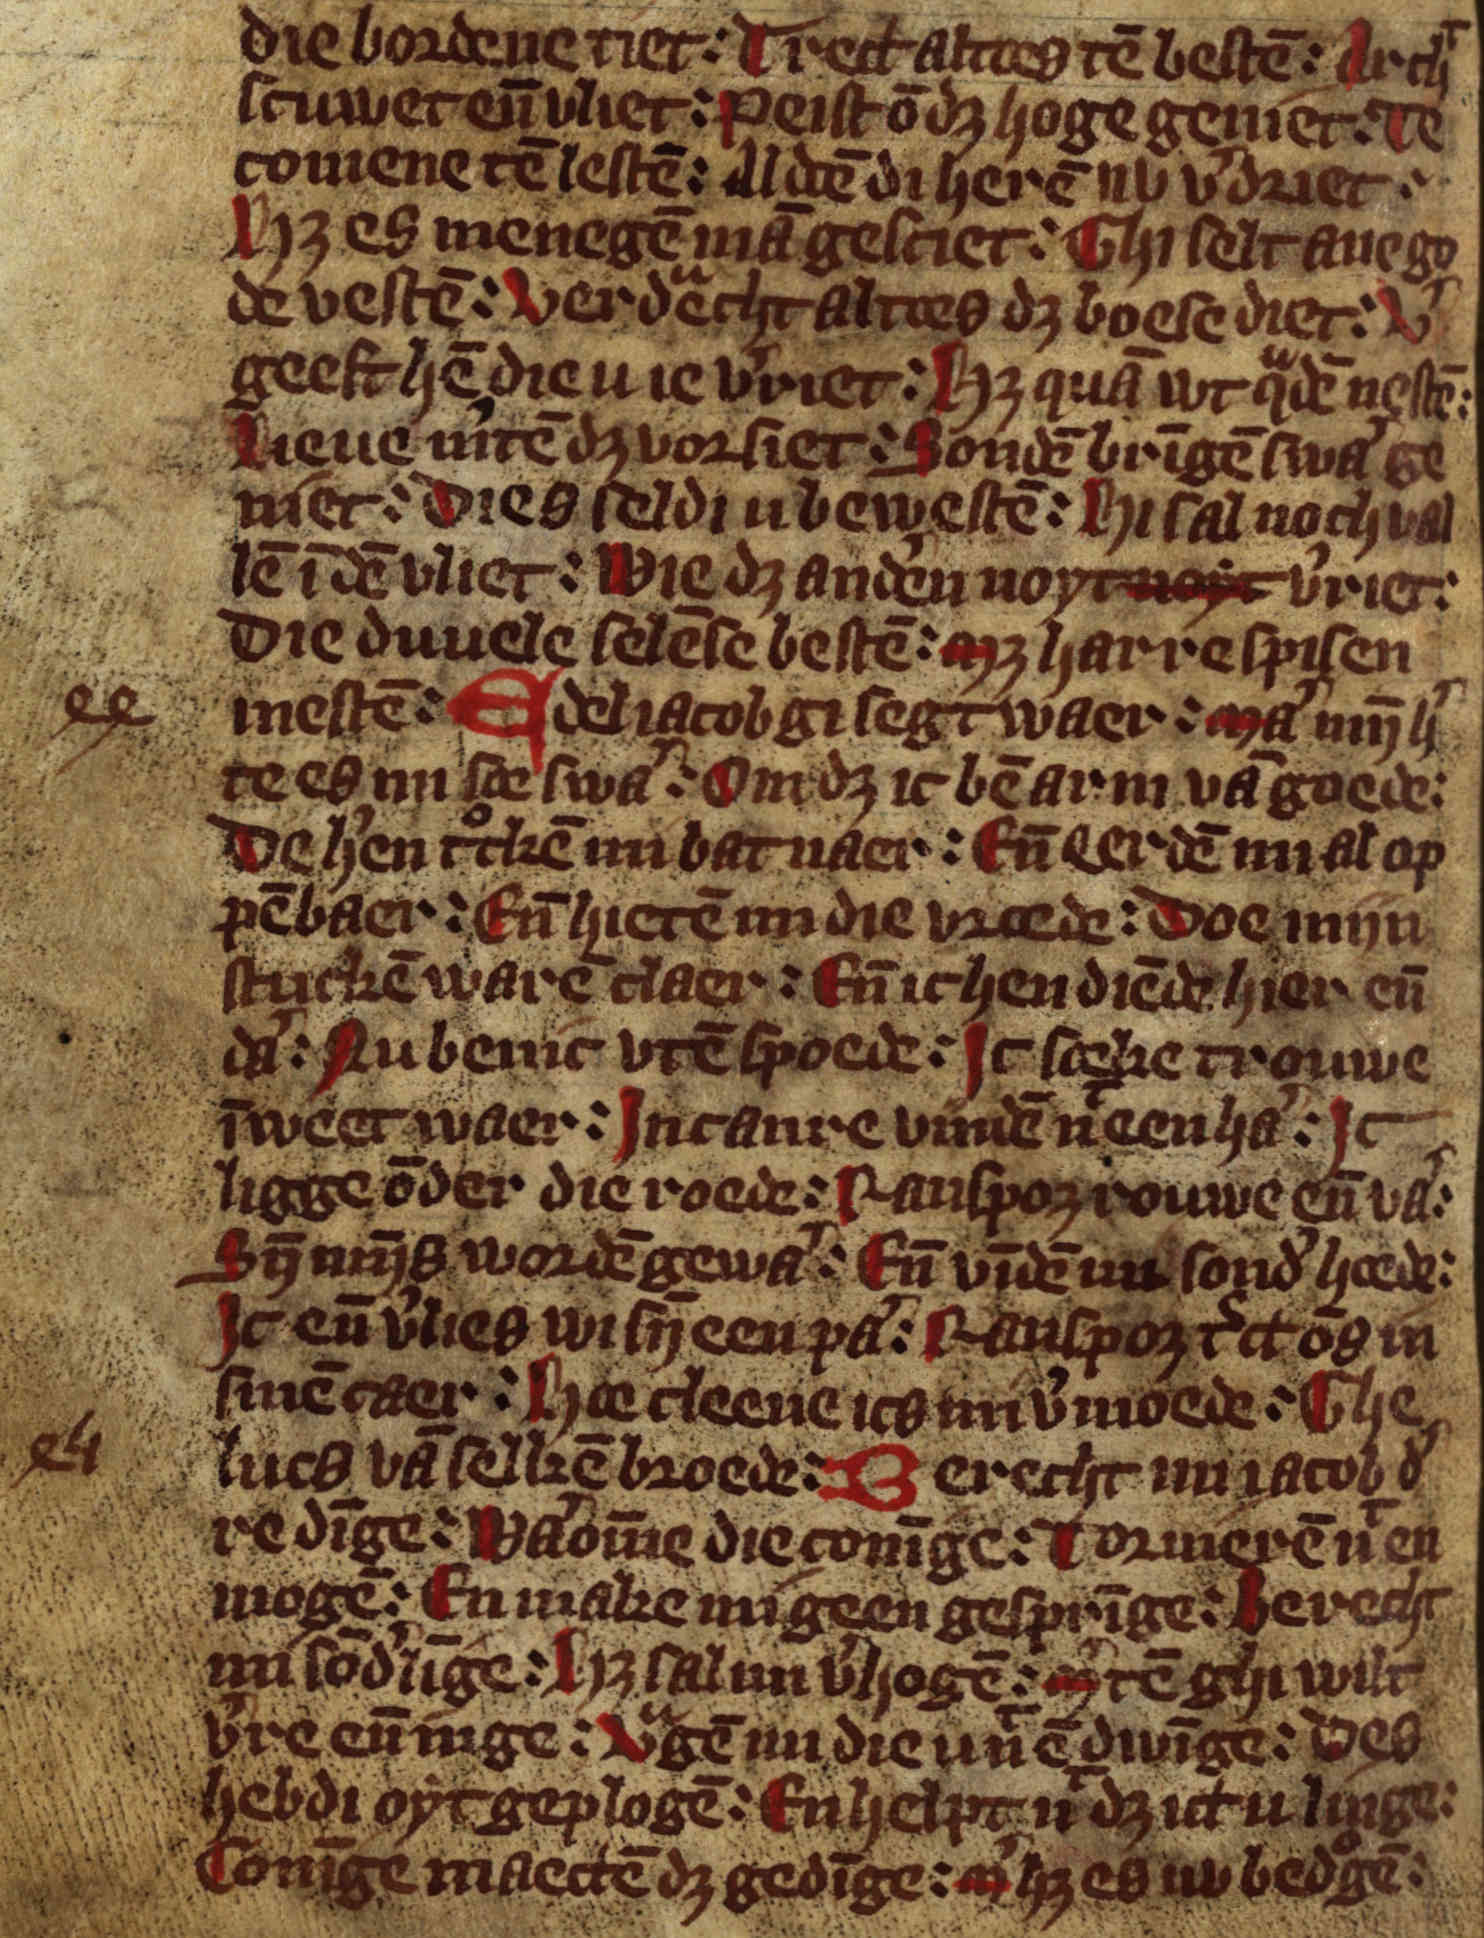 die bordene tiet: Trect altoes tē bestē: Arch
scuwet eñ vliet: Peist ō dꝫ hoge geniet: Te
comene tē lestē: Al dēē di herē nv v'driet:
Hꝫ es menegē mā gesciet: Ghi selt ane go
de vestē: Verduecht altoes dꝫ boese diet: V'
geeft hē die u ie v'riet: Hꝫ quā wt qͣdē nestē:
Lieue m'itē dꝫ vorsiet: Sondē brīgē swa' ge
niet: Dies seldi u bewestē: Hi sal noch val
lē ī dē vliet: Wie dꝫ anden noyt noyt v'riet:
Die duuele selē se bestē: Mꝫ harre spisen
ee mestē: Edel iacob gi segt waer: Ma' mȳ h'
te es mi soe swa': Om dꝫ ic bē arm vā goede:
De h'en tͦckē mi bat naer: Eñ eerdē mi al op
pēbaer: Eñ hietē mi die vroede: Doe mijn
stuckē warē claer: Eñ ic hen diēde hier eñ
da': Nu benic vtē spoede: Ic soeke trouwe
īweet waer: Incanre vindē nͭ een ha': Ic
ligge ōder die roede: Rauspoꝫ rouwe eñ va':
Sȳ mȳs wordē gewa': Eñ vīdē mi sond' hoede:
Ic eñ v'lies wi sȳ een pa': Rauspoꝫ t'ct ōs in
sinē caer: Hoe cleene ics mi v'moede: Ghe
eh lucs vā selkē broede: Berecht mi iacob d'
re dīge: Wa'ōme die conīge: Tormerē nͭ en
mogē: En make mi geen gesprīge: Berecht
mi sōd'līge: Hꝫ sal mi v'hogē: M'tē ghi wilt
v're eñnige: Vͧgē mi die u nͭ ē dwīge: Des
hebdi oyt geplogē: En helpt nͭ dꝫ ict u linge:
Conīge maectē dꝫ gedīge: M' hꝫ es uw bedͦgē: